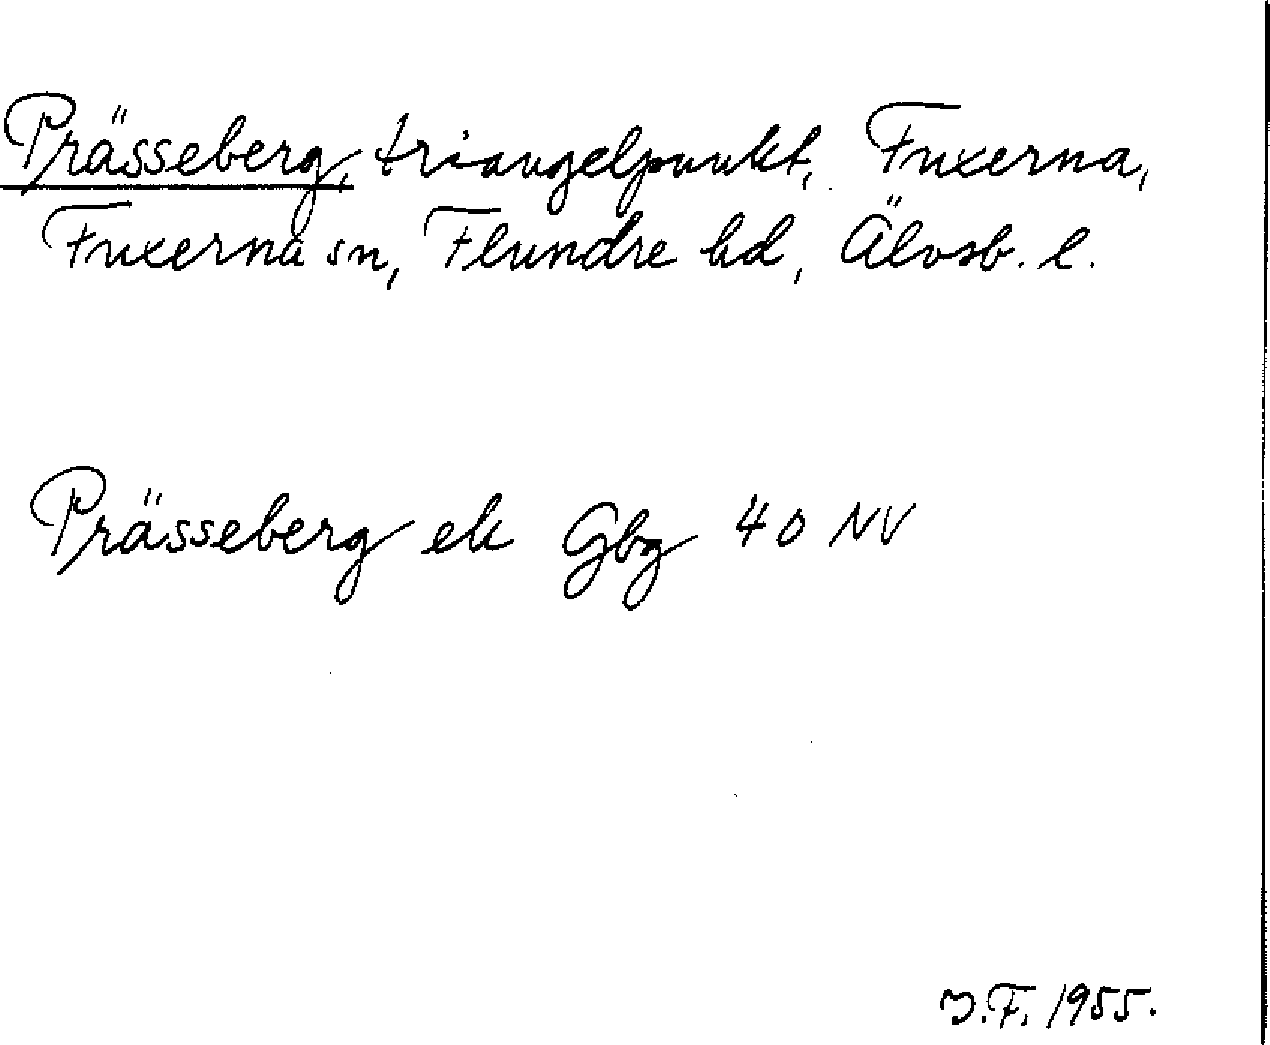 Prässeberg, triangelpunkt, Fuxerna,
Fuxerna sn, Flundre hd, Älvsb. l.
Prässeberg ek Gbg 40 NV
J.F. 1955.